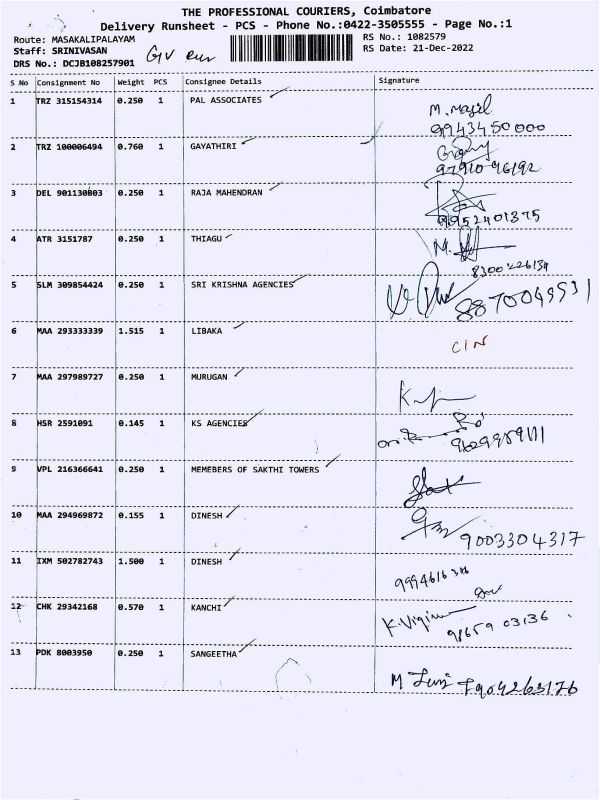 THE PROFESSIONAL COURIERS, Coimbatore
Delivery Runsheet - PCS - Phone No.:0422-3505555 - Page No.:1
Route: MASAKALIPALAYAM RS No.: 1082579
Staff: SRINIVASAN RS Date: 21-Dec-2022
DRS No.: DCJB108257901
S No Consignment No Weight PCS Consignee Details Signature
1 TRZ 315154314 0.250 1 PAL ASSOCIATES
9943450000
2 TRZ 100006494 0.760 1 GAYATHIRI
97910 96192
3 DEL 901130803 0.250 1 RAJA MAHENDRAN
9952401375
4 ATR 3151787 0.250 1 THIAGU
M.
8300226134
5 SLM 309854424 0.250 1 SRI KRISHNA AGENCIES
8870049931
6 MAA 293333339 1.515 1 LIBAKA
CIN
7 MAA 297989727 0.250 1 MURUGAN
8 HSR 2591091 0.145 1 KS AGENCIES
9 VPL 216366641 0.250 1 MEMEBERS OF SAKTHI TOWERS
10 MAA 294969872 0.155 1 DINESH
9003304317
11 IXM 502782743 1.500 1 DINESH
12 CHK 29342168 0.570 1 KANCHI
98659 03136
13 PDK 8003950 0.250 1 SANGEETHA
7904263176